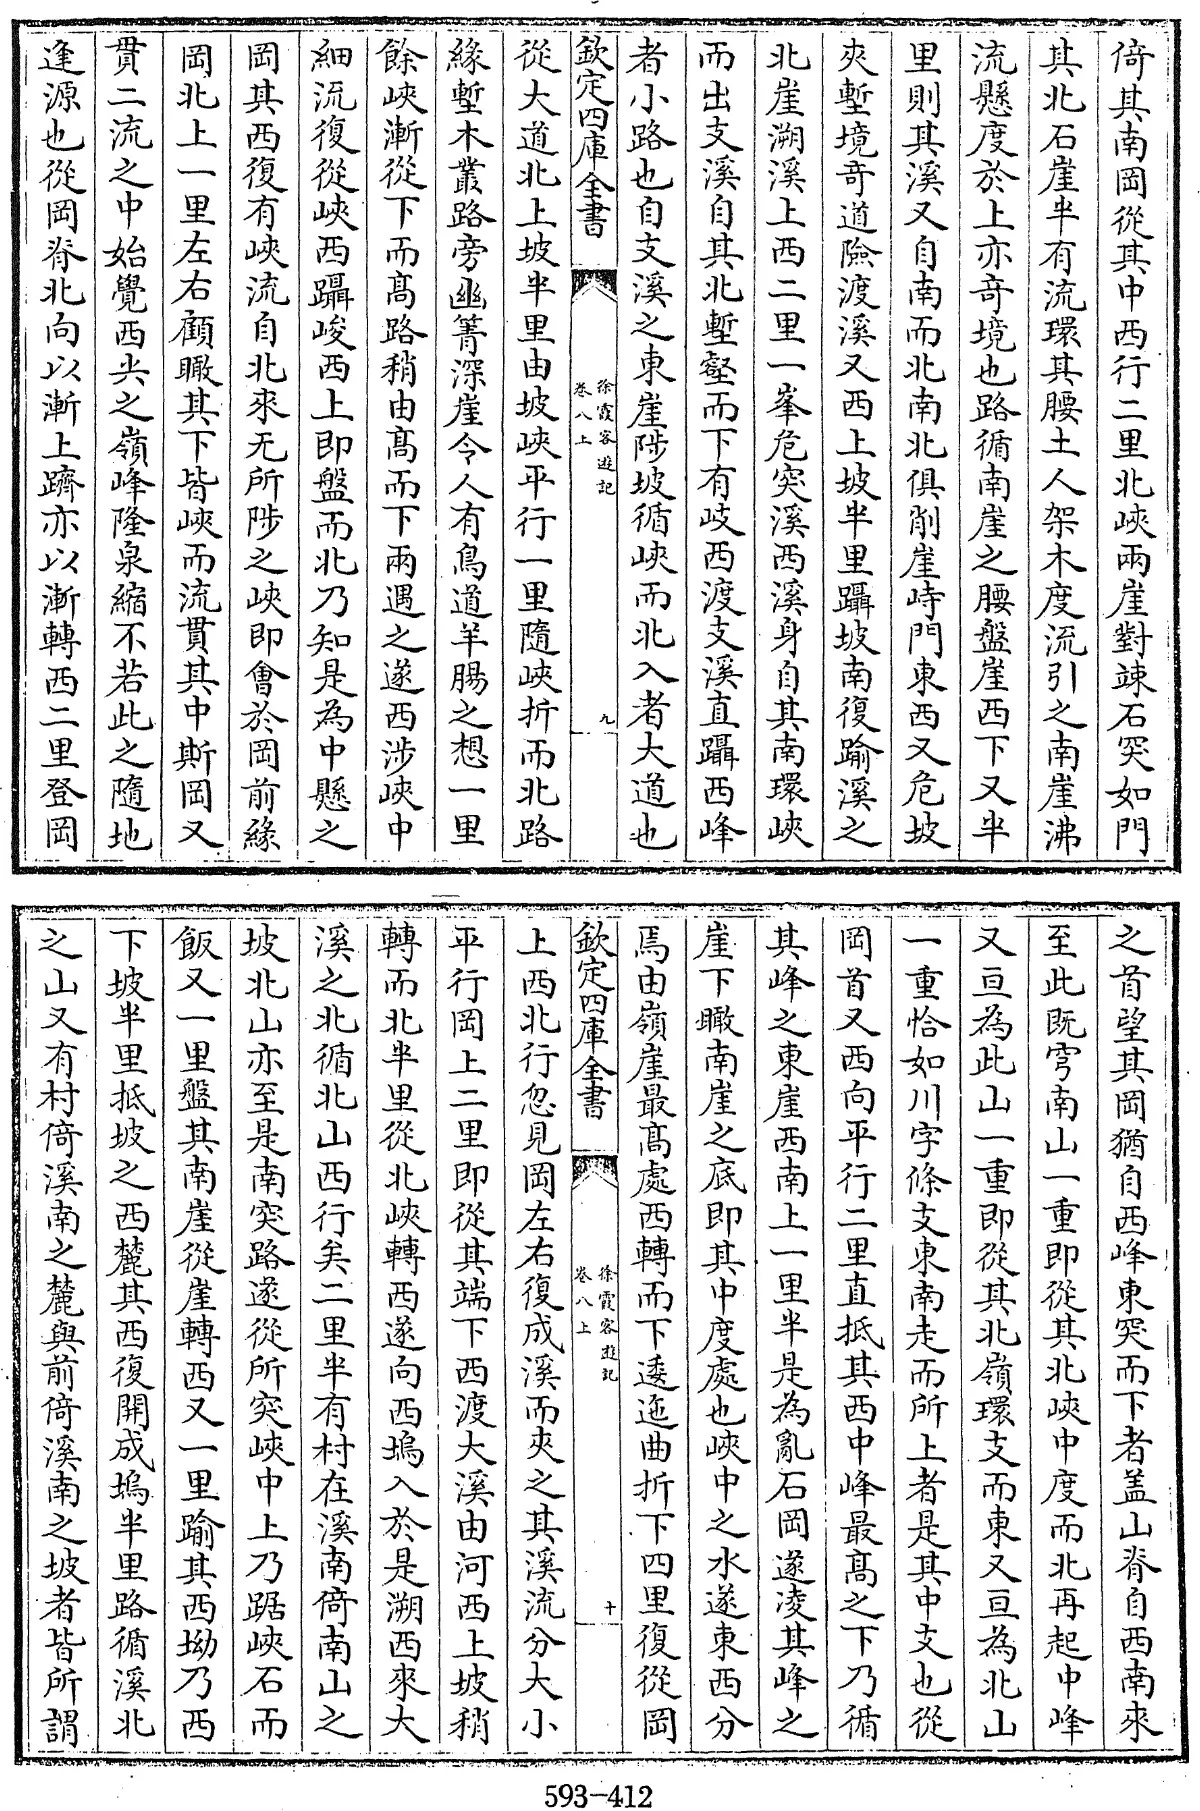 倚其南岡從其中西行二里北峽兩崖對竦石突如門
其北石崖半有流環其腰土人架木度流引之南崖沸
流懸度於上亦竒境也路循南崖之腰盤崖西下又半
里則其溪又自南而北南北俱削崖峙門東西又危坡
夾塹境竒道險渡溪又西上坡半里躡坡南復踰溪之
北崖溯溪上西二里一峯危突溪西溪身自其南環峽
而出支溪自其北塹壑而下有岐西渡支溪直躡西峰
者小路也自支溪之東崖陟坡循峽而北入者大道也
欽定四庫全書
徐霞客遊記
卷八上
九
從大道北上坡半里由坡峽平行一里隨峽折而北路
緣塹木叢路旁幽篝深崖令人有鳥道羊腸之想一里
餘峽漸從下而髙路稍由髙而下兩遇之遂西涉峽中
細流復從峽西躡峻西上即盤而北乃知是為中懸之
岡其西復有峽流自北來无所陟之峽即會於岡前緣
岡北上一里左右顧瞰其下皆峽而流貫其中斯岡又
貫二流之中始覺西尖之嶺峰隆泉縮不若此之隨地
逢源也從岡脊北向以漸上躋亦以漸轉西二里登岡
之首望其岡猶自西峰東突而下者盖山脊自西南來
至此既穹南山一重即從其北峽中度而北再起中峰
又亘為此山一重即從其北嶺環支而東又亘為北山
一重恰如川字條支東南走而所上者是其中支也從
岡首又西向平行二里直抵其西中峰最髙之下乃循
其峰之東崖西南上一里半是為亂石岡遂凌其峰之
崖下瞰南崖之底即其中度處也峽中之水遂東西分
焉由嶺崖最髙處西轉而下逶迤曲折下四里復從岡
欽定四庫全書
徐霞客遊記
卷八上
十
上西北行忽見岡左右復成溪而夾之其溪流分大小
平行岡上二里即從其端下西渡大溪由河西上坡稍
轉而北半里從北峽轉西遂向西塢入於是溯西來大
溪之北循北山西行矣二里半有村在溪南倚南山之
坡北山亦至是南突路遂從所突峽中上乃踞峽石而
飯又一里盤其南崖從崖轉西又一里踰其西坳乃西
下坡半里抵坡之西麓其西復開成塢半里路循溪北
之山又有村倚溪南之麓與前倚溪南之坡者皆所謂
593-412